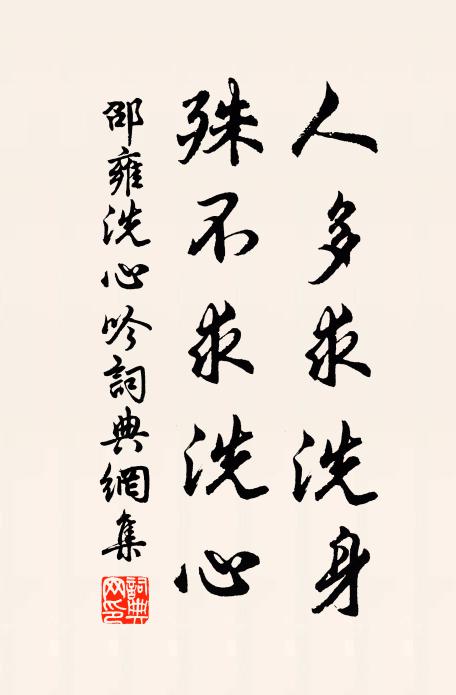 人多求洗身
殊不求洗心
邵雍洗心吟詞典網集
詞典
网印